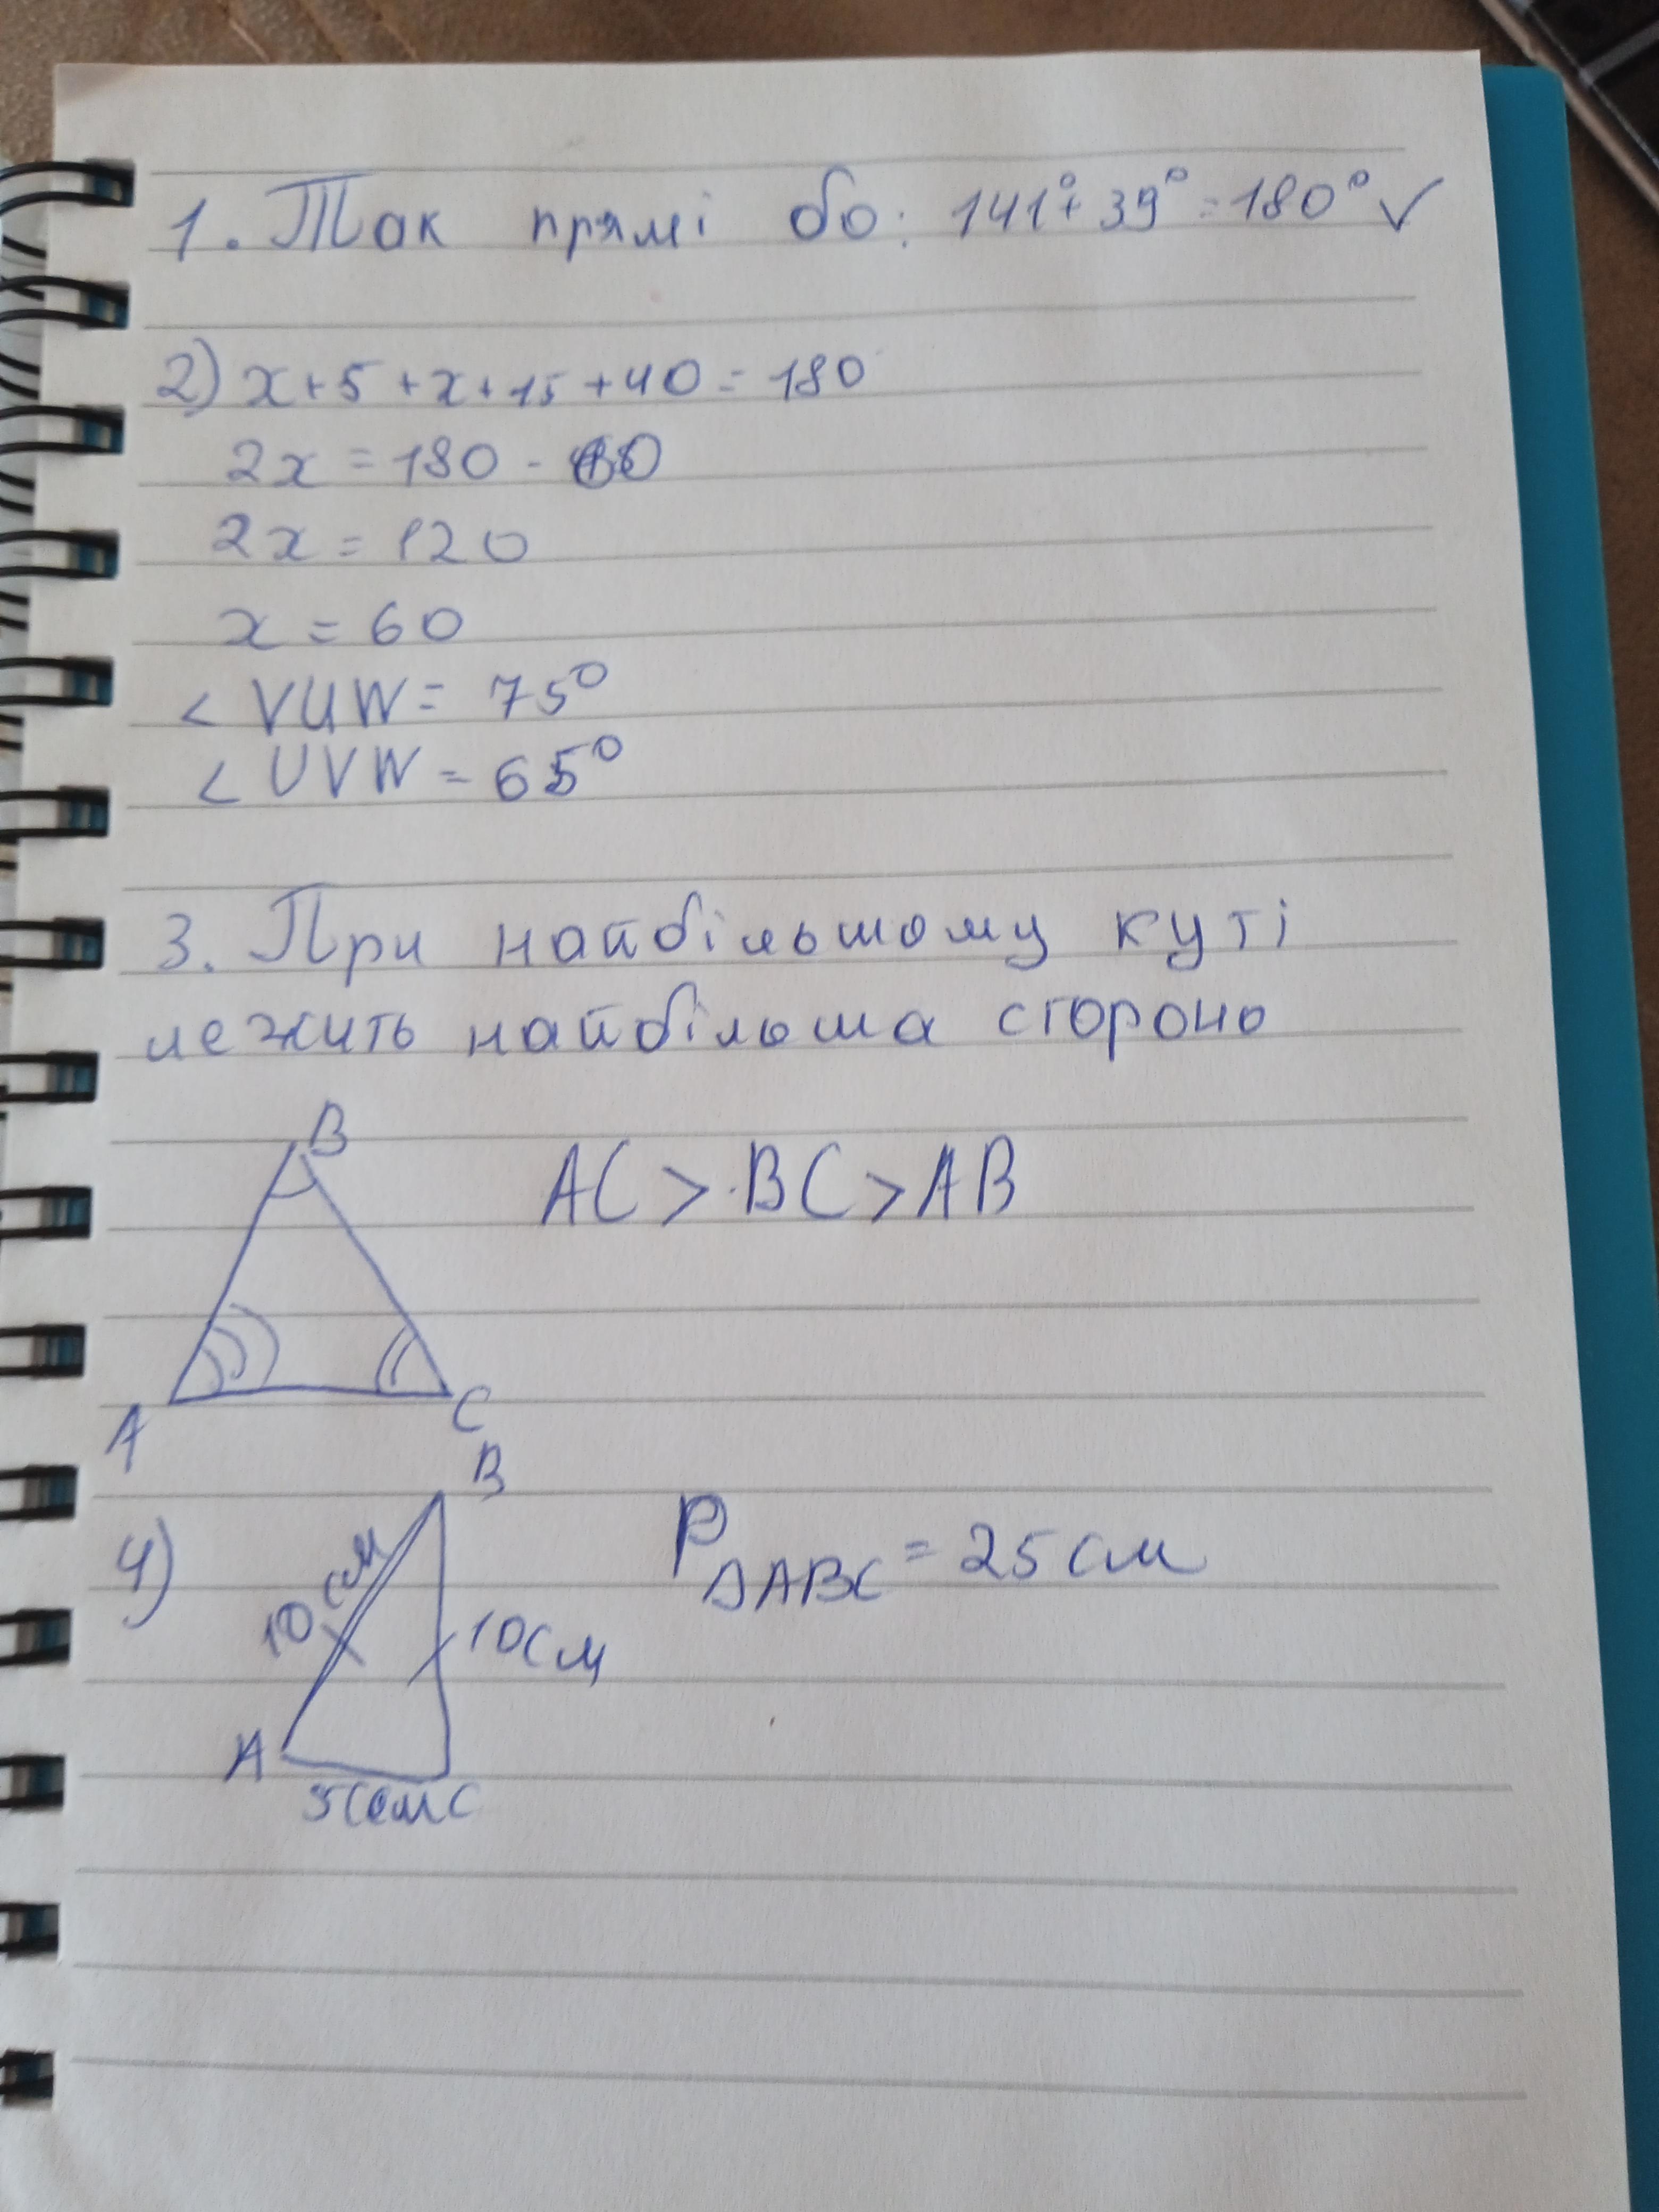 1. Так прямі бо: 141°+39°=180° ✓
2) x+5+x+15+40=180
2x=180-60
2x=120
x=60
<VUW=75°
<UVW=65°
3. При найбільшому куті
лежить найбільша сторона
B
AC>BC>AB
A
C
B
4)
10 см
P ΔABC = 25 см
10 см
A
C